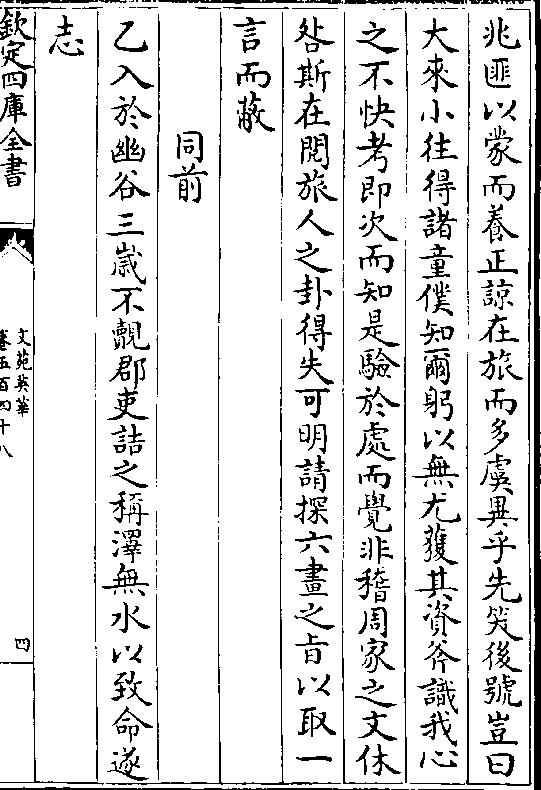 兆匪以蒙而養正諒在旅而多虞異乎先笑後號豈曰
大來小往得諸童僕知爾躬以無尤獲其資斧識我心
之不快考即次而知是驗於處而覺非稽周家之文休
咎斯在閱旅人之卦得失可明請探六畫之旨以取一
言而蔽
同前
乙入於幽谷三歲不覿郡吏詰之稱澤無水以致命遂
志
欽定四庫全書
文苑英華
卷五百四十八
四